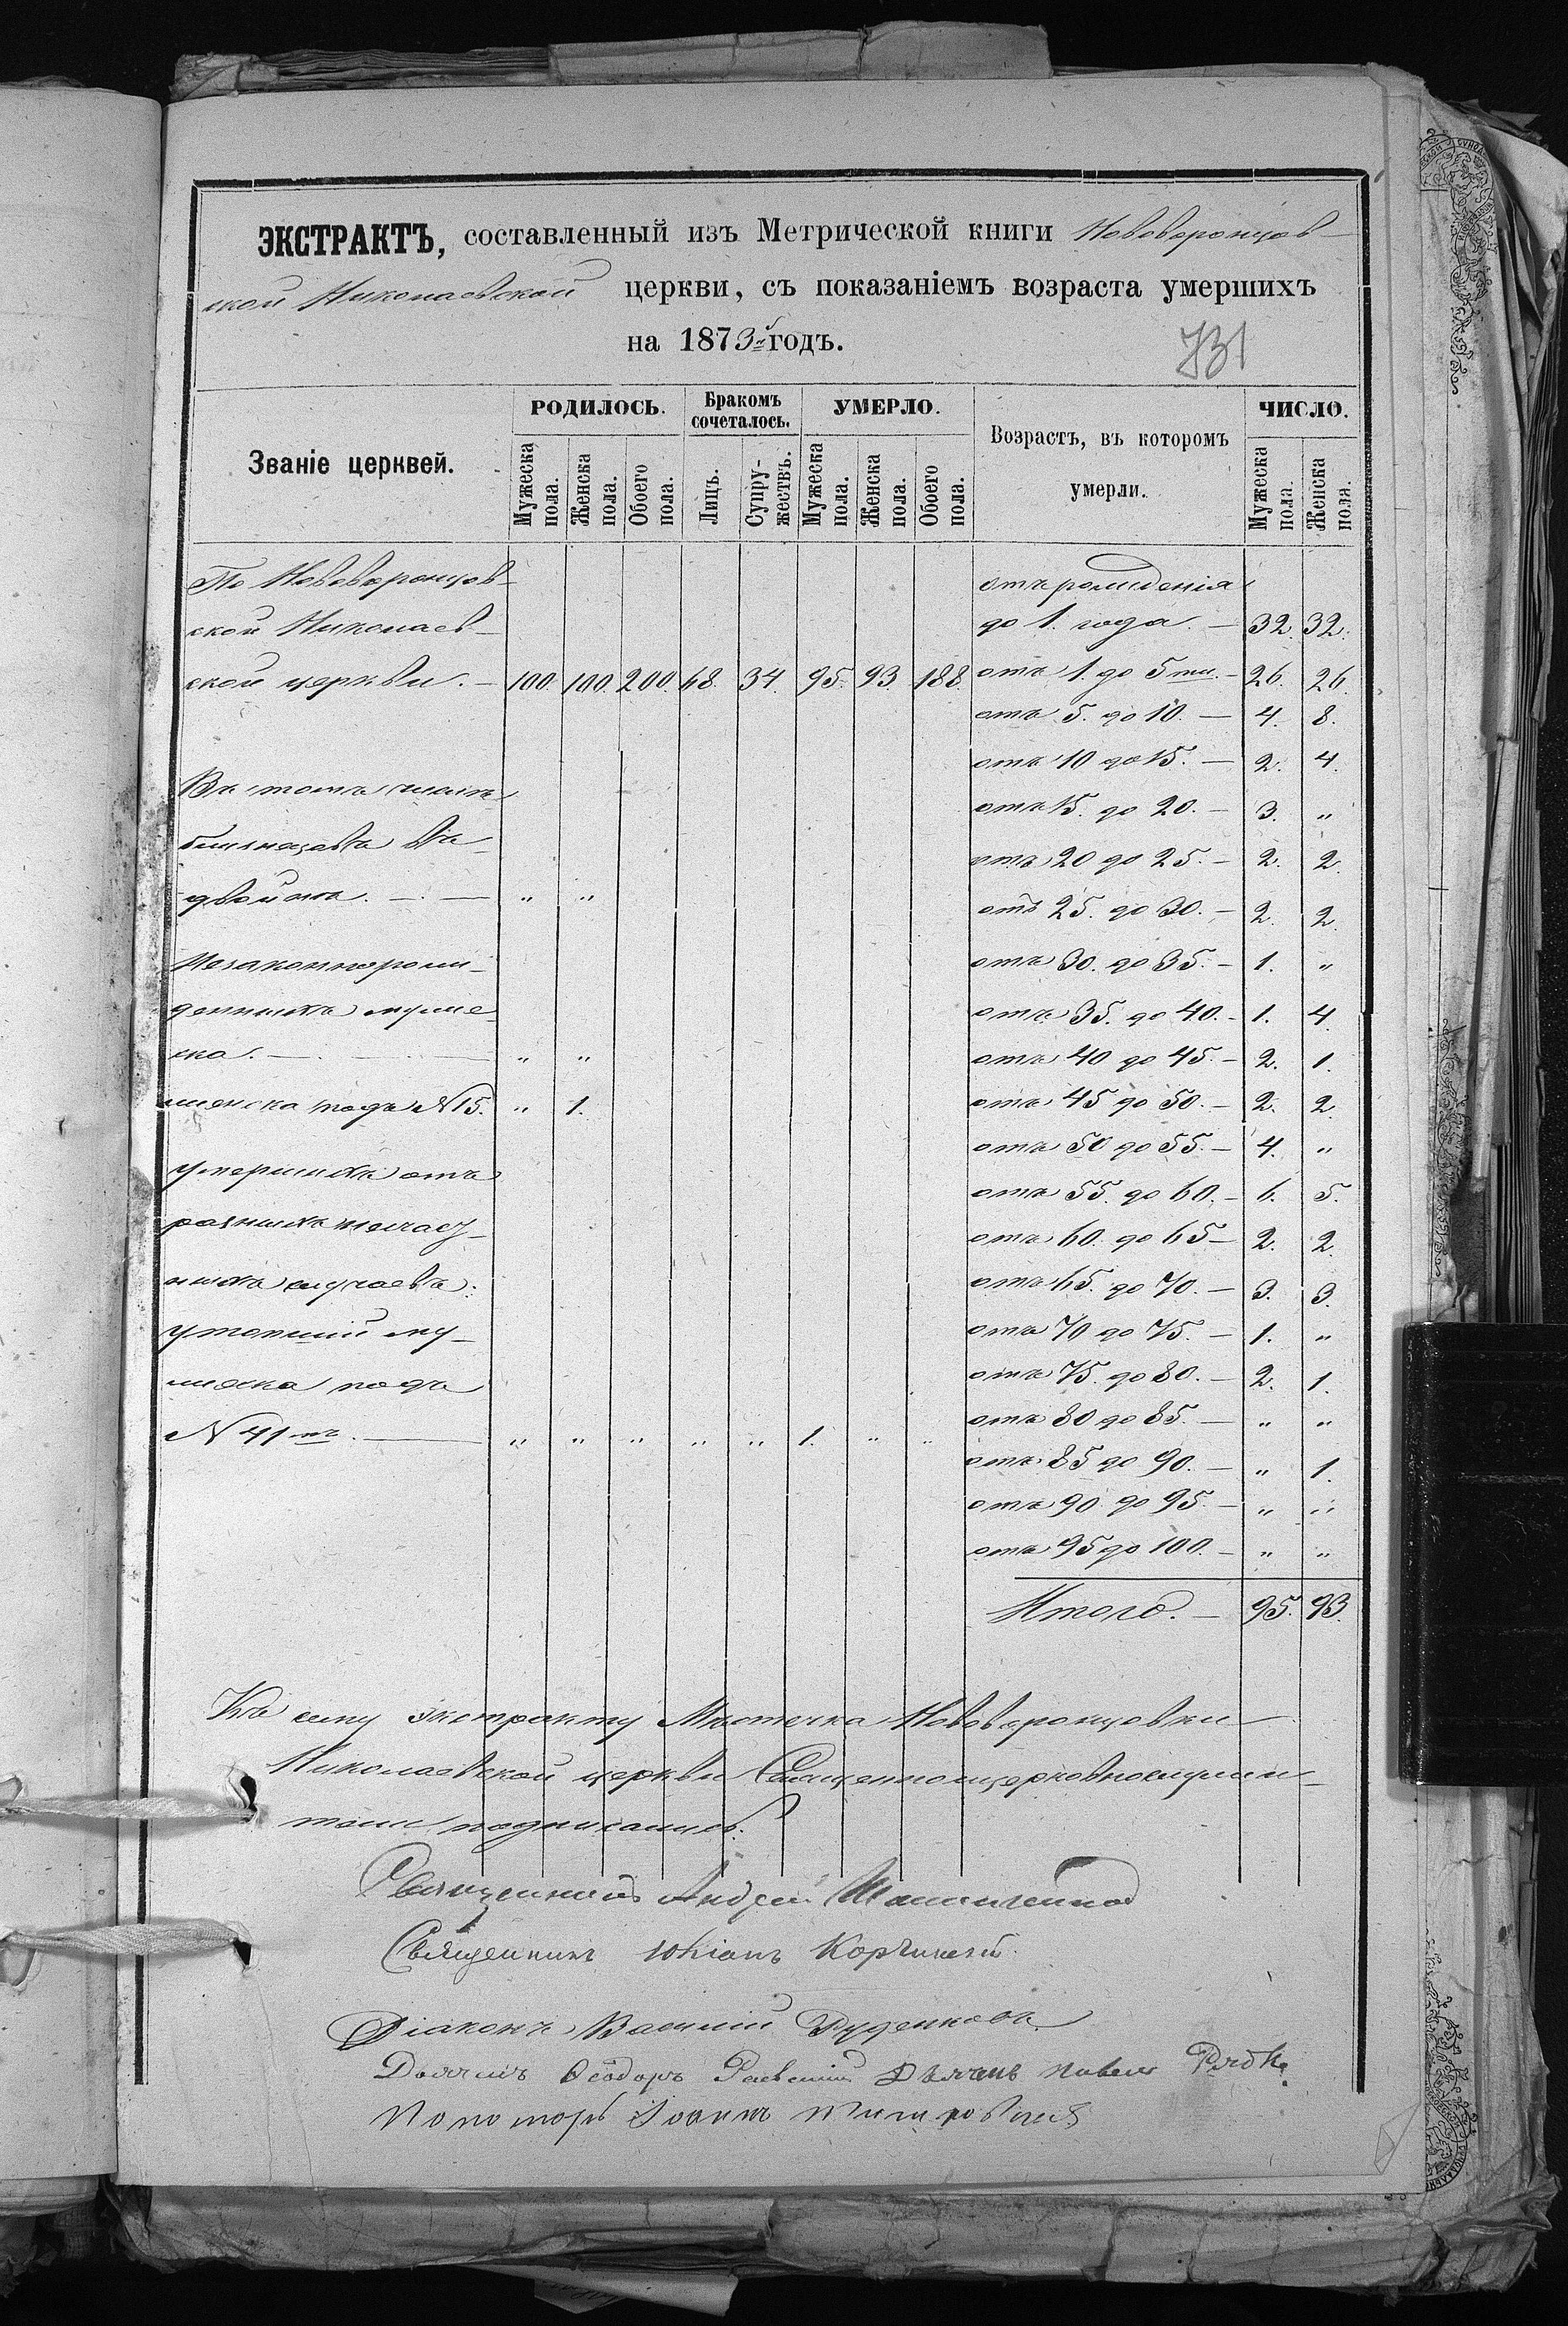 ЭКСТРАКТЪ, составленный изъ Метрической книги Нововоронцов-
ской Николаевской церкви, съ показаніемъ возраста умершихъ
на 1873й годъ.
731
Званіе церквей.
РОДИЛОСЬ.
Бракомъ сочеталось.
УМЕРЛО.
Возрастъ, въ которомъ умерли.
ЧИСЛО.
Мужеска пола.
Женска пола.
Обоего пола.
Лицъ.
Супру-жествъ.
Мужеска пола.
Женска пола.
Обоего пола.
Мужеска пола.
Женска пола.
По Нововоронцов-
ской Николаев-
ской церкви. — 100. 100. 200. 68. 34. 95. 93. 188.
Въ томъ числѣ
близнецовъ
двойнь. — . — " "
Незаконнорож-
денныхъ муже-
ска. — " "
женска подъ N 15. " 1.
умершихъ отъ
разныхъ несчаст-
ныхъ случаевъ:
утопшій му-
жеска подъ
N 41мъ. — " " " " " 1. " "
отъ рожденія
до 1. года. — 32. 32.
отъ 1. до 5ти. — 26. 26.
отъ 5. до 10. — 4. 8.
отъ 10 до 15. — 2. 4.
отъ 15. до 20. — 3. "
отъ 20 до 25. — 2. 2.
отъ 25. до 30. — 2. 2.
отъ 30. до 35. — 1. "
отъ 35. до 40. — 1. 4.
отъ 40 до 45. — 2. 1.
отъ 45 до 50. — 2. 2.
отъ 50 до 55. — 4. "
отъ 55. до 60. — 6. 5.
отъ 60. до 65 — 2. 2.
отъ 65. до 70. — 3. 3.
отъ 70 до 75. — 1. "
отъ 75. до 80. — 2. 1.
отъ 80 до 85. — " "
отъ 85 до 90. — " 1.
отъ 90 до 95. — " "
отъ 95 до 100. — " "
Итого. — 95. 93.
Къ сему экстракту Мѣстечка Нововоронцовки
Николаевской церкви Священноцерковнослужи-
тели подписались:
Священникъ Андрей
Священникъ Юліанъ Корчинскій.
Діаконъ Василій Руденковъ
Дьячекъ Ѳеодоръ Раевскій Дьячекъ Павелъ
Пономарь Іоаннъ